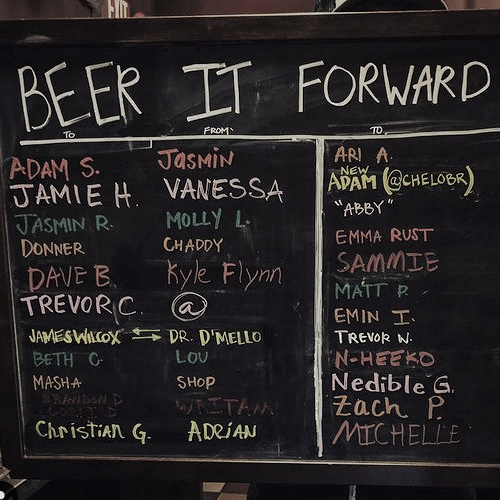 EXIT
BEER IT FORWARD
TO FROM: TO
ADAM S. JASMIN
JAMIE H. VANESSA
JASMIN R. MOLLY L.
DONNER CHADDY
DAVE B Kyle Flynn
TREVOR C. @
JAMES WILCOX ↔ DR. D'MELLO
BETH C. LOU
MASHA SHOP
BRANDON D WRITAM
Christian G. ADRIAN
ARI A.
NEW
ADAM (@CHELOBR)
"ABBY"
EMMA RUST
SAMMIE
MATT P.
EMIN I.
TREVOR N.
N-HEEKO
Nedible G.
Zach P.
MICHELLE